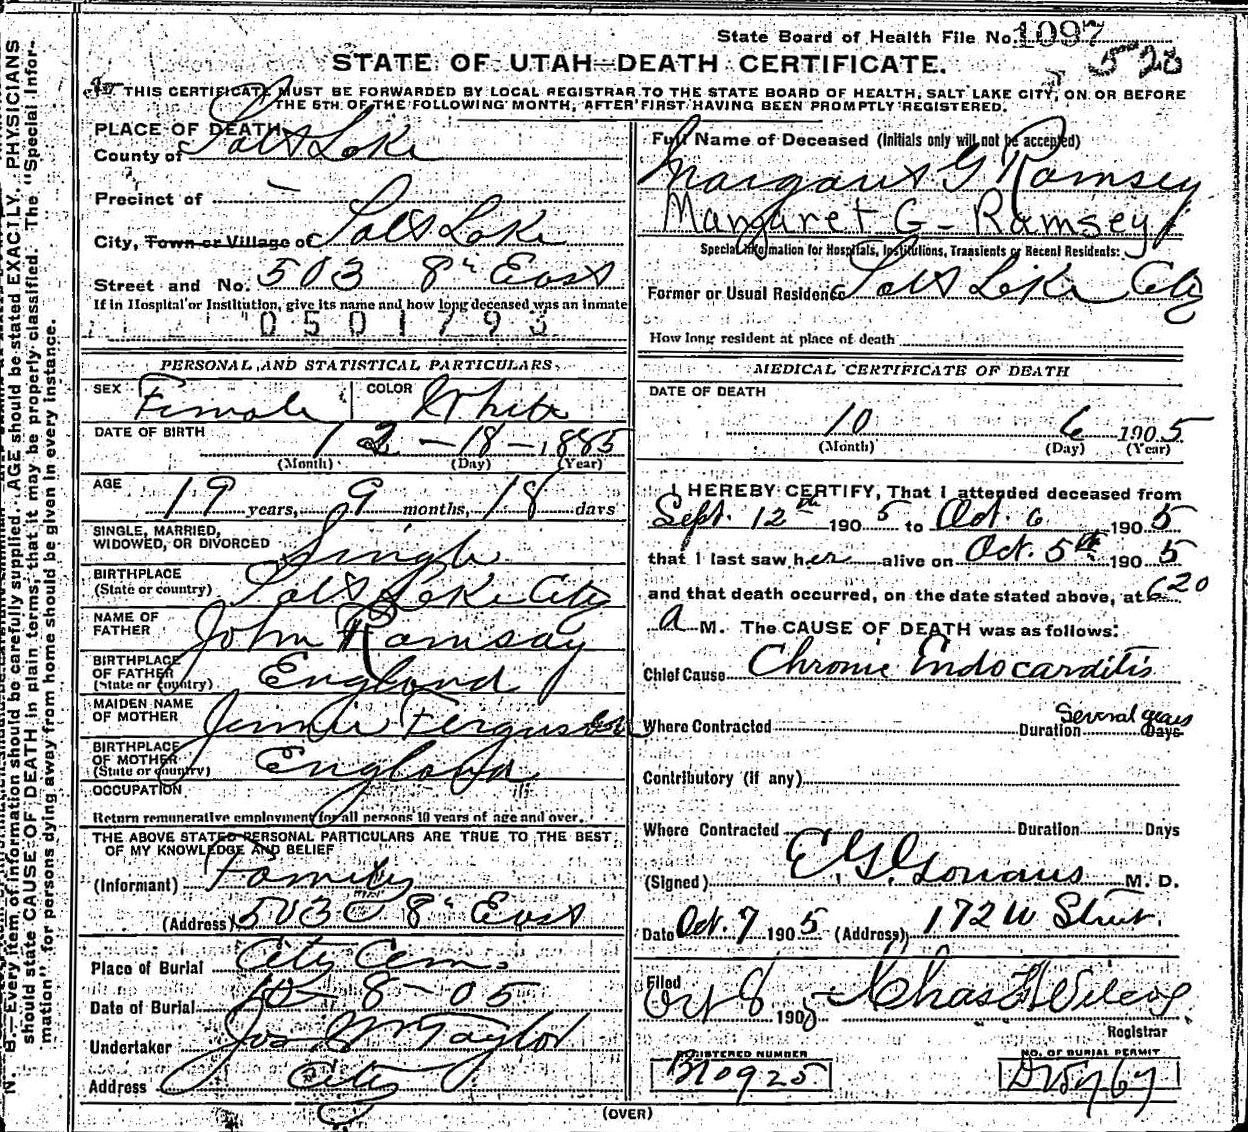 State Board of Health File No. 1097
528
STATE OF UTAH—DEATH CERTIFICATE.
THIS CERTIFICATE MUST BE FORWARDED BY LOCAL REGISTRAR TO THE STATE BOARD OF HEALTH, SALT LAKE CITY, ON OR BEFORE
THE 5TH OF THE FOLLOWING MONTH, AFTER FIRST HAVING BEEN PROMPTLY REGISTERED.
PLACE OF DEATH
County of Salt Lake
Precinct of —
City, Town or Village of Salt Lake
Street and No. 503 8th East
If in Hospital or Institution, give its name and how long deceased was an inmate
0501793
PERSONAL AND STATISTICAL PARTICULARS.
SEX Female COLOR White
DATE OF BIRTH 12 - 18 - 1885
(Month) (Day) (Year)
AGE 19 years, 9 months, 18 days
SINGLE, MARRIED,
WIDOWED, OR DIVORCED Single
BIRTHPLACE
(State or country) Salt Lake City
NAME OF
FATHER John Ramsay
BIRTHPLACE
OF FATHER
(State or Country) England
MAIDEN NAME
OF MOTHER Jennie Ferguson
BIRTHPLACE
OF MOTHER
(State or country) England
OCCUPATION
Return remunerative employment for all persons 10 years of age and over.
THE ABOVE STATED PERSONAL PARTICULARS ARE TRUE TO THE BEST
OF MY KNOWLEDGE AND BELIEF
(Informant) Family
(Address) 503 8th East
Place of Burial City Cem.
Date of Burial 10-8-05
Undertaker Jos Wm Taylor
Address City
Full Name of Deceased (Initials only will not be accepted)
Margaret G Ramsey
Margaret G- Ramsey
Special Information for Hospitals, Institutions, Transients or Recent Residents:
Former or Usual Residence Salt Lake City
How long resident at place of death
MEDICAL CERTIFICATE OF DEATH
DATE OF DEATH
10 6 1905
(Month) (Day) (Year)
I HEREBY CERTIFY, That I attended deceased from
Sept. 12th 1905 to Oct. 6 1905
that I last saw her alive on Oct. 5th 1905
and that death occurred, on the date stated above, at 620
a M. The CAUSE OF DEATH was as follows:
Chief Cause Chronic Endocarditis
Where Contracted Duration Several years Days
Contributory (if any)
Where Contracted Duration Days
(Signed) M. D.
Date Oct. 7 1905 (Address) 172 W Street
Filed Oct 8 1905 Chas Wilcox
Registrar
REGISTERED NUMBER
NO. OF BURIAL PERMIT
(OVER)
N. B.—Every item of information should be carefully supplied. AGE should be stated EXACTLY. PHYSICIANS
should state CAUSE OF DEATH in plain terms, that it may be properly classified. The "Special Infor-
mation" for persons dying away from home should be given in every instance.